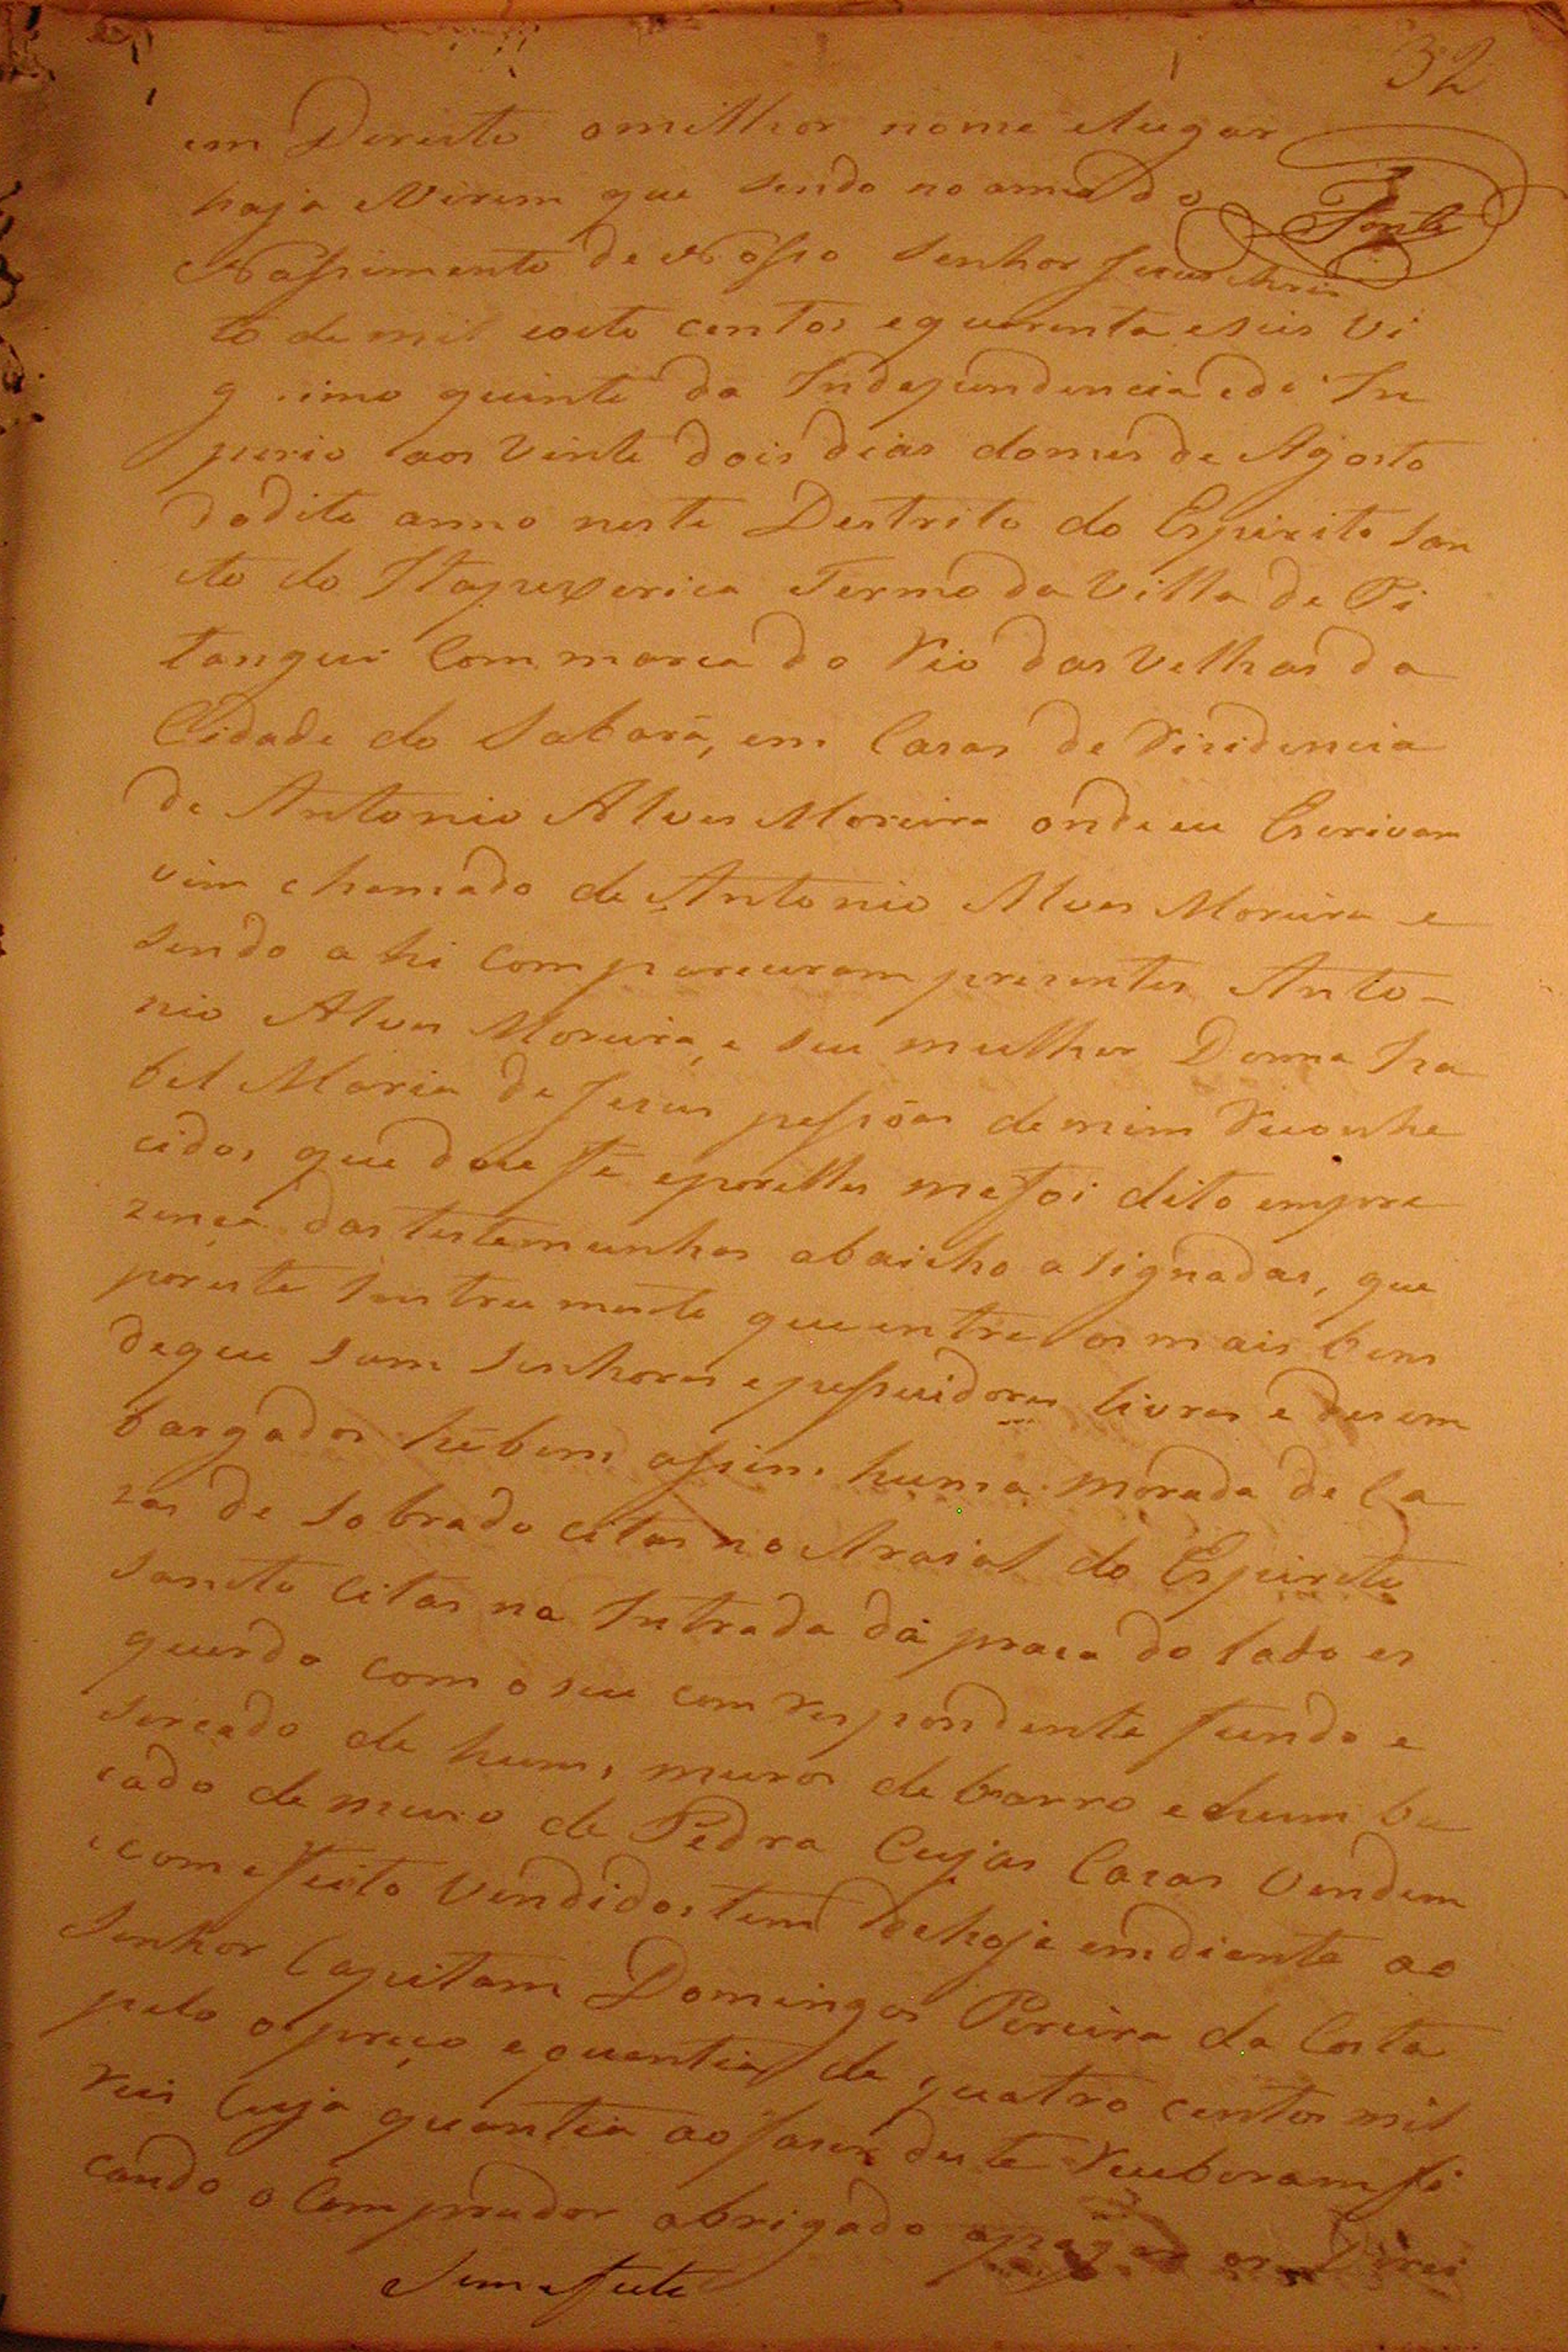 32
em Dereito o milhor nome e lugar
haja Virem que sendo no anno do
Fonte
Nassimento de Nosso Senhor Jesus Chris
to de mil e oito centos e quarenta e seis Vi
g imo quinto da Independencia e do In
perio aos vinte dois dias do mes de Agosto
do dito anno neste Destrito do Espirito San
cto do Itapeserica Termo da Villa de Pi
tangui Commarca do Rio das Velhas da
Cidade do Sabará, em Casas de Risidencia
de Antonio Alves Moreira onde eu Escrivam
vim chamado de Antonio Alves Moreira e
sendo ahi compareceram presentes Anto-
nio Alves Moreira, e seu mulher Donna Isa
bel Maria de Jesus pessoas de mim Reconhe
cidos que dou fé e por elles me foi dito em pre
zença das testemunhas abaicho asignadas, que
por este Instrumento que entre os mais bens
de que sam senhores e pessuidores livres e desem
bargados hé bem assim huma morada de Ca
zas de sobrado citas no Araial do Espireto
Santo Citas na Intrada da praca do lado es
querdo com o seu com respondente fundo e
sercado de huns muros de barro e hum bo
cado de muro de Pedra Cujas Casas Vendem
e com efeito Vendidos tem de hoje em diente ao
Senhor Capitam Domingos Pereira da Costa
pelo o preço e quantia de quatro centos mil
reis Cuja quantia ao faser deste Receberam fi
cando o Comprador obrigado apagar os Direi
Sem efeito